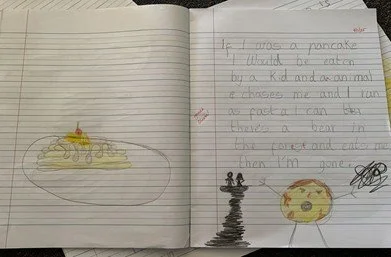 If I was a pancake
I Would be eaten
by a Kid and an animal
chases me and I ran
as fast a I can
there's a bear in
the forest and eats me
then I'm gone.